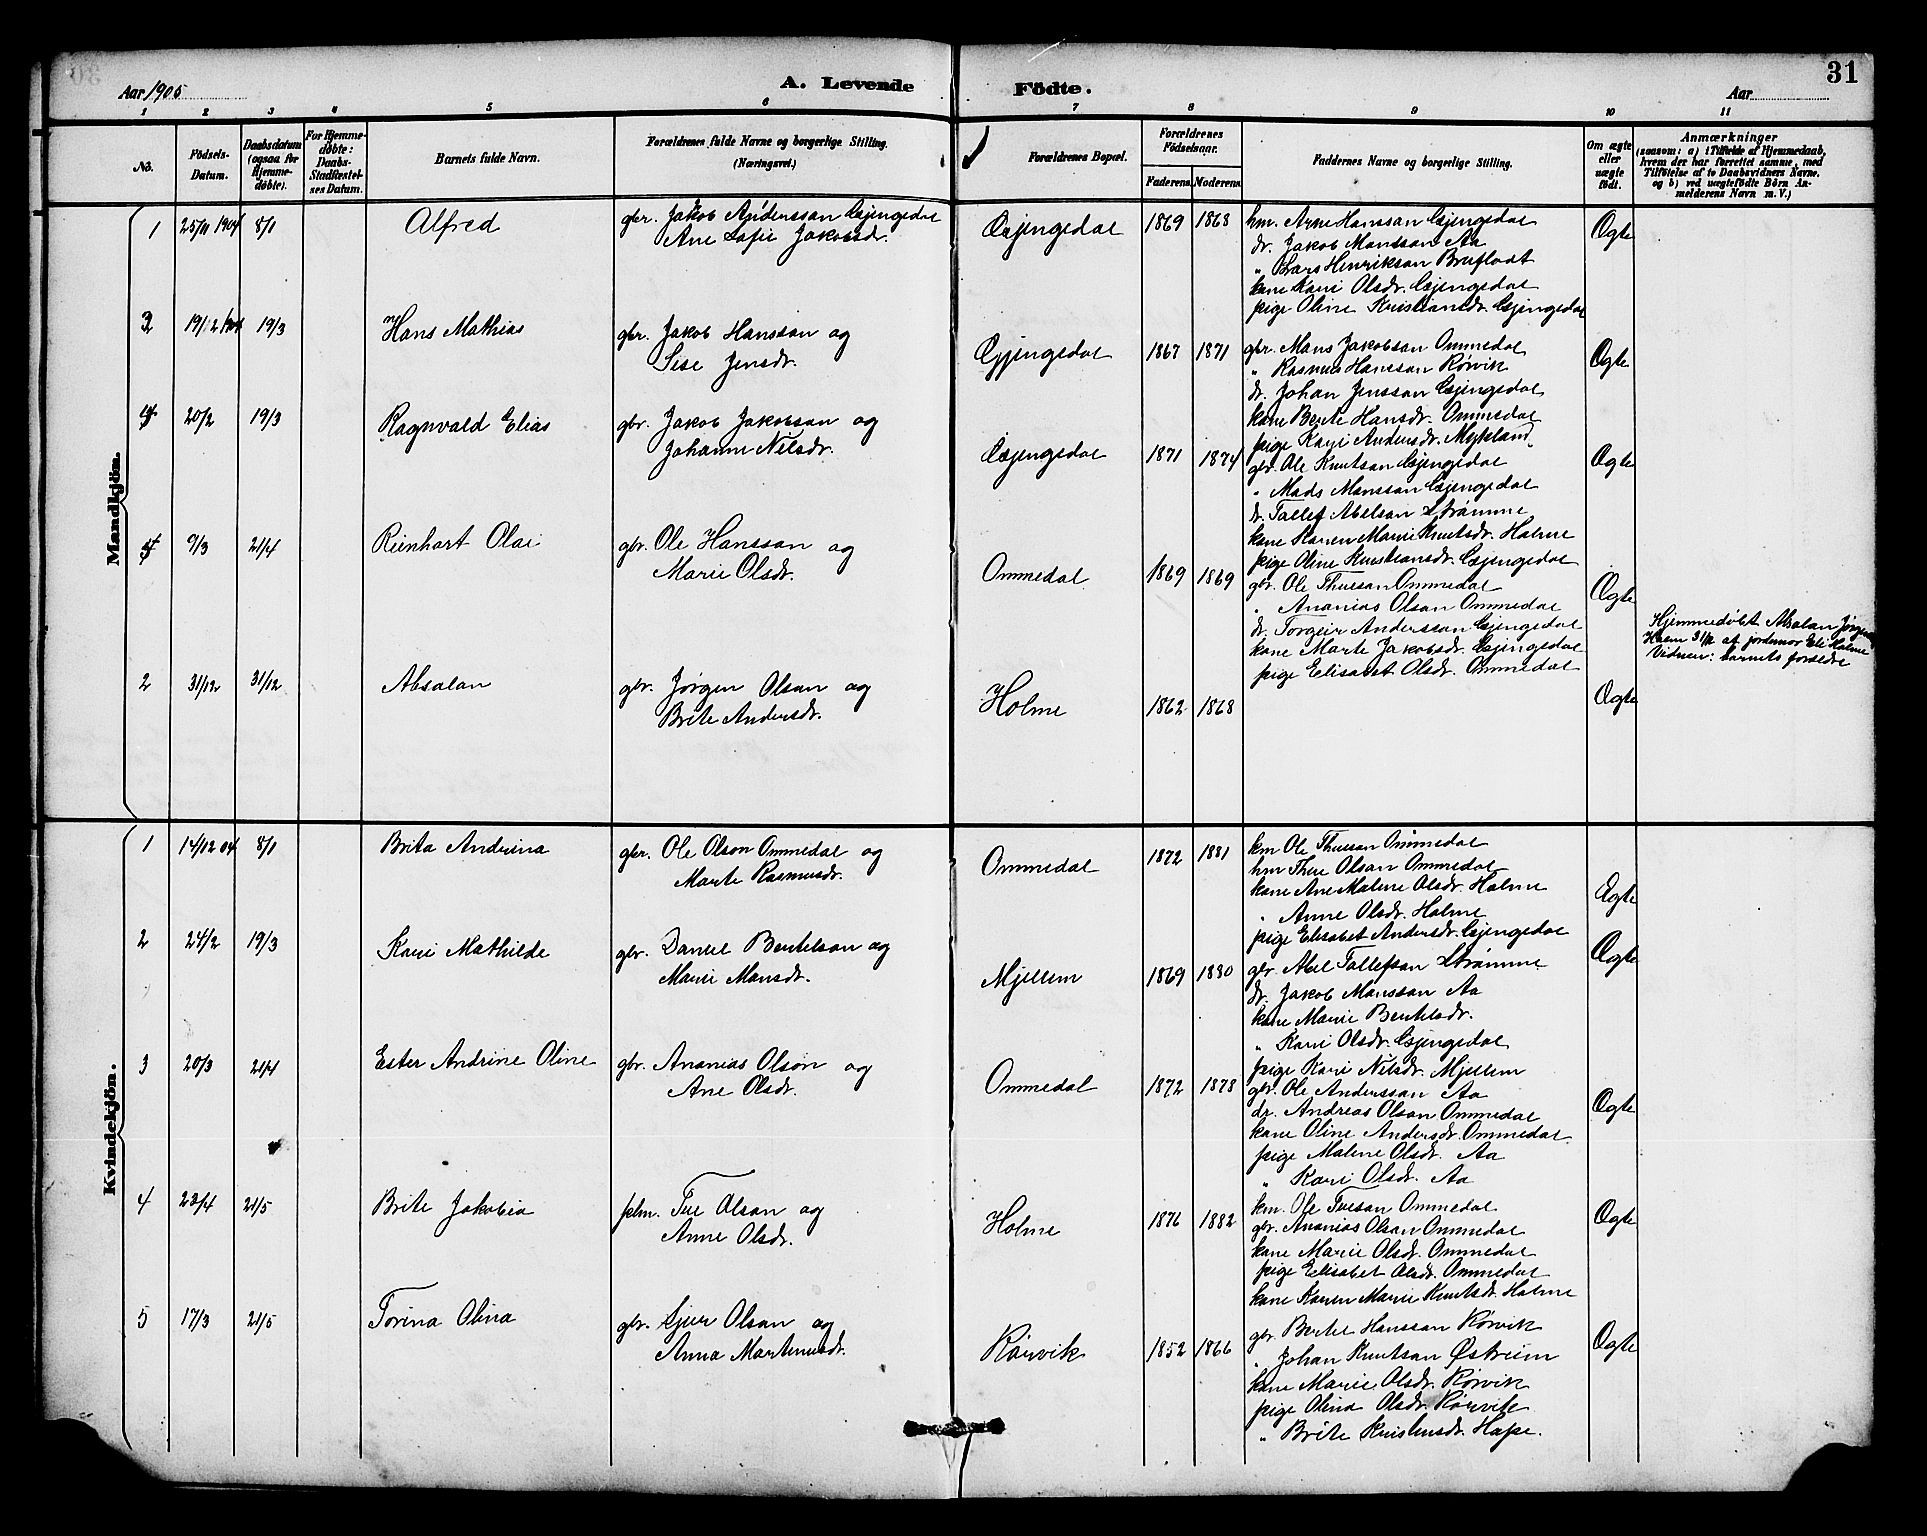 31
Aar 1905
A. Levende
Födte.
Aar
1 2 3 4 5 6 7 8 9 10 11
No.
Födsels-
Datum.
Daabsdatum
(ogsaa for
Hjemme-
döbte).
For Hjemme-
döbte:
Daabs-
Stadfæstel-
ses Datum.
Barnets fulde Navn.
Forældrenes fulde Navne og borgerlige Stilling.
(Næringsvei.)
Forældrenes Bopæl.
Forældrenes
Födselsaar.
Faderens
Moderens
Faddernes Navne og borgerlige Stilling.
Om ægte
eller
uægte
födt.
Anmærkninger
(saasom: a) i Tilfælde af Hjemmedaab,
hvem der har forrettet samme, med
Tilföielse af to Daabsvidners Navne.
og b) ved uægtefödte Börn An-
melderens Navn m. V.)
Mandkjön.
1 25/11 1904 8/1 Alfred
gbr. Jakob Anderssan Gjengedal
Ane Sofie Jakobsdr.
Gjengedal 1869 1868
hm. Arne Hanssan Gjengedal
dr. Jakob Manssan Aa
" Lars Henriksan Brufladt
kone Kari Olsdr. Gjengedal
pige Oline Kristiansdr. Gjengedal
Ægte
2 19/12 1904 19/3 Hans Mathias
gbr. Jakob Hanssan og
Sise Jensdr.
Gjengedal 1867 1871
gbr. Mons Jakobsan Ommedal
" Rasmus Hanssan Rørvik
dr. Johan Jenssan Gjengedal
kone Berte Hansdr. Ommedal
pige Kari Andersdr. Mykland
Ægte
20/2 19/3 Ragnvald Elias
gbr. Jakob Jakobsan og
Johanne Nilsdr.
Gjengedal 1871 1874
gbr. Ole Knutsan Gjengedal
" Mads Monssan Gjengedal
dr. Tollef Abelsan Strømme
kone Karen Marie Knutsdr. Holme
pige Oline Kristiansdr. Gjengedal
Ægte
9/3 21/4 Rienhart Olai
gbr. Ole Hanssan og
Marie Olsdr.
Ommedal 1869 1869
gbr. Ole Thuesan Ommedal
" Ananias Olsan Ommedal
dr. Torgeir Anderssan Gjengedal
kone Marte Jakobsdr. Gjengedal
pige Elisabet Olsdr. Ommedal
Ægte
2 31/12 31/12 Absalan
gbr. Jørgen Olsan og
Brite Andersdr.
Holme 1862 1868
Ægte
Hjemmedøbt Absalan
Holm 31/12 af jordmor Eli Holme
Vidner: barnets forældre
Kvindekjön.
1 14/12 04 8/1 Brita Andrina
gbr. Ole Olson Ommedal og
Marte Rasmusdr.
Ommedal 1872 1881
km Ole Thuesan Ommedal
hm Thue Olsan Ommedal
kone Ane Malene Olsdr. Holme
" Anne Olsdr. Holme
pige Elisabet Andersdr. Gjengedal
Ægte
2 24/2 19/3 Kari Mathilde
gbr. Daniel Bentelsan og
Marie Monsdr.
Mjellem 1869 1880
gbr. Abel Tollefsan Strømme
dr. Jakob Manssan Aa
kone Marie Bentelsdr.
" Kari Olsdr. Gjengedal
pige Kari Nilsdr. Mjellem
Ægte
3 20/3 21/4 Ester Andrine Oline
gbr. Ananias Olson og
Ane Olsdr.
Ommedal 1872 1878
gbr. Ole Anderssan Aa
dr. Andreas Olsan Ommedal
kone Oline Andersdr. Ommedal
pige Malene Olsdr. Aa
" Kari Olsdr. Aa
Ægte
4 23/4 21/5 Brite Jakobia
plm. Tue Olsan og
Anne Olsdr.
Holme 1876 1882
km. Ole Tuesan Ommedal
gbr. Ananias Olsan Ommedal
kone Marie Olsdr. Ommedal
pige Elisabet Olsdr. Ommedal
kone Karen Marie Knutsdr. Holme
Ægte
5 17/3 21/5 Torina Olina
gbr. Gjer Olsan og
Anna Martinusdr.
Rørvik 1852 1866
gbr. Bertel Hanssan Rørvik
" Johan Knutsan Østrem
kone Marie Olsdr. Rørvik
pige Olina Olsdr. Rørvik
" Brite Kristensdr. Hope.
Ægte